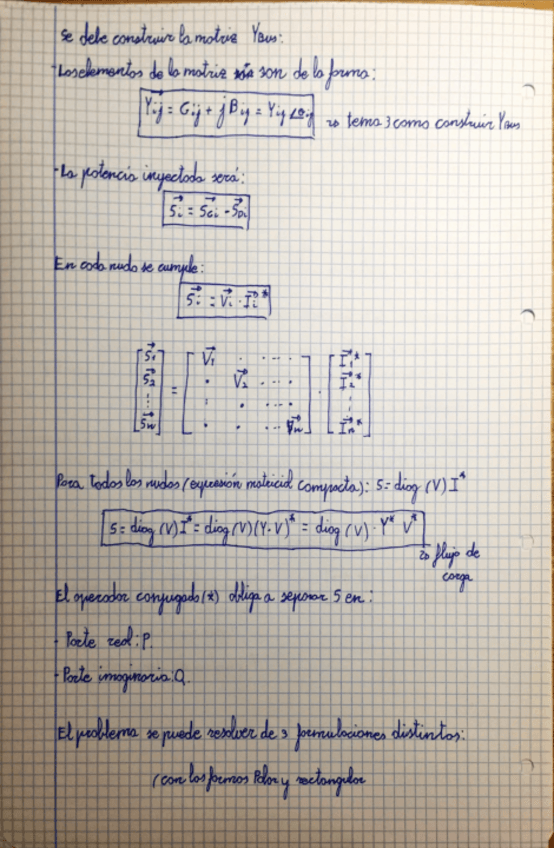 Se debe construir la matriz YBUS:
-Los elementos de la matriz son de la forma:
Y⃗ij = Gij + jBij = Yij∠θij → tema 3 como construir YBUS
-La potencia inyectada será:
S⃗i = S⃗Gi - S⃗Di
En cada nudo se cumple:
S⃗i = V⃗i · I⃗i*
[S⃗1] = [V⃗1 . . ...] · [I⃗1*]
[S⃗2] [. V⃗2 . ...] [I⃗2*]
[⋮] [. . ...] [⋮]
[S⃗n] [. . ... V⃗n] [I⃗n*]
Para todos los nudos (expresión matricial compacta): S=diag (V) I*
S = diag (V) I* = diag (V) (Y·V)* = diag (V) · Y* V*
→ flujo de
carga
El operador conjugado (*) obliga a separar S en:
- Parte real: P.
- Parte imaginaria: Q.
El problema se puede resolver de 3 formulaciones distintas:
(con las formas Polar y rectangular